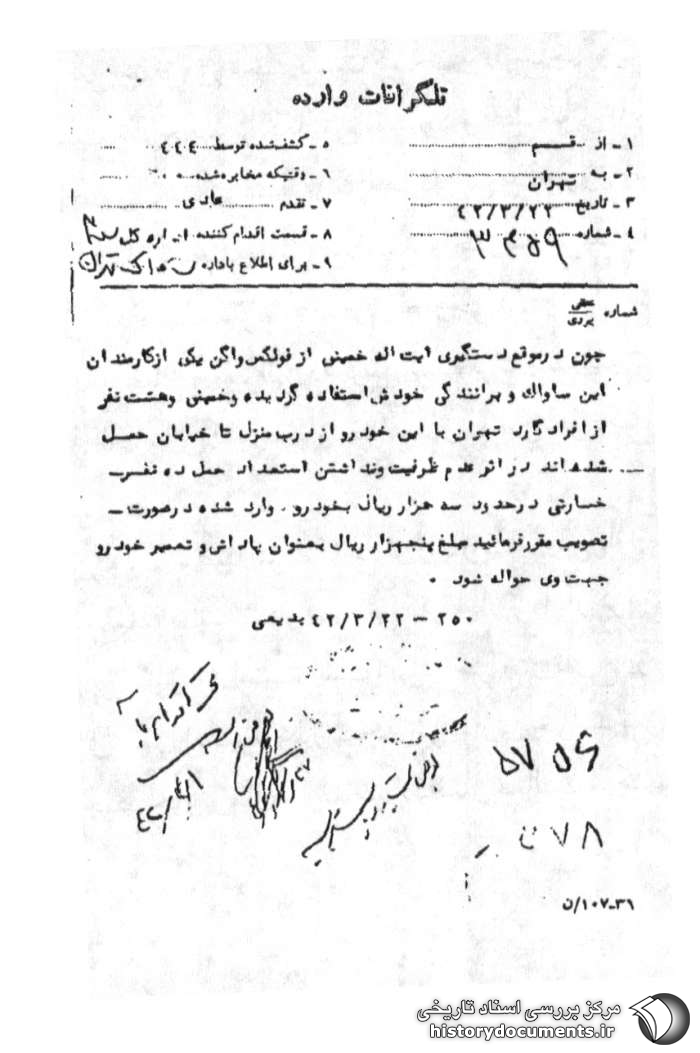 تلگرافات وارده
۱ ـ از قسم
۲ ـ به تهران
۳ ـ تاریخ ۴۲/۳/۲۲
۴ ـ شماره ۳۴۵۹
۵ ـ کشف شده توسط ۴۴۴
۶ ـ وقتیکه مخابره شده
۷ ـ تقدم عادی
۸ ـ قسمت اقدام کننده اداره کل سوم
۹ ـ برای اطلاع باداره ساواک تهران
شماره عطفی پیروی
چون در موقع دستگیری ایت اله خمینی از فولکس واگن یکی از کارمندان
این ساواك و برانندگی خودش استفاده گردیده وخمینی وهشت نفر
از افراد گارد تهران با این خودرو از درب منزل تا خیابان حمل
شده اند در اثر عدم ظرفیت ونداشتن استعداد حمل ده نفر ـ
خسارتی در حدود سه هزار ریال بخودرو . وارد شده درصورت ـ
تصویب مقرر فرمائید مبلغ پنجهزار ریال بعنوان پاداش و تعمیر خودرو
جهت وی حواله شود .
۲۵۰ ـ ۴۲/۳/۲۲ بدیعی
۵۷۵۶
۷۸
۳۱ـ۱۰۷/ن
مرکز بررسی اسناد تاریخی
historydocuments.ir